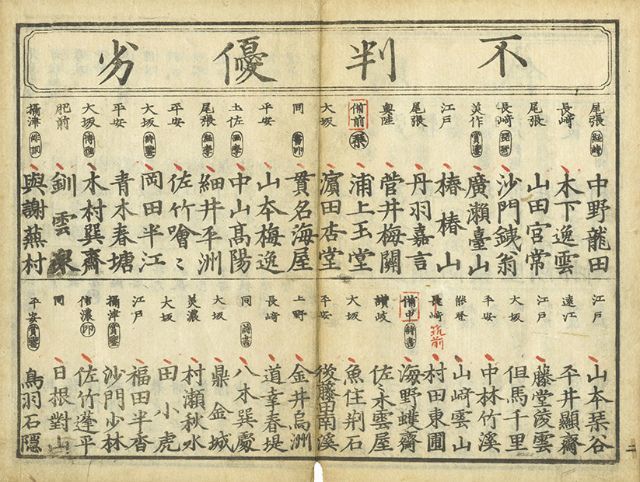 不判優劣
尾張 中野龍田
長崎 木下逸雲
尾張 山田宮常
長崎 沙門鐵翁
美作 廣瀨臺山
江戸 椿椿山
尾張 丹羽嘉言
奥陸 菅井梅關
備前 浦上玉堂
大坂 濵田杏堂
同 貫名海屋
平安 山本梅逸
土佐 中山髙陽
尾張 細井平洲
平安 佐竹噲〻
大坂 岡田半江
平安 青木春塘
大坂 木村巽齋
肥前 釧雲泉
攝津 與謝蕪村
江戸 山本琹谷
遠江 平井顯齋
江戸 藤堂蓤雲
大坂 但馬千里
平安 中林竹溪
能登 山﨑雲山
長崎 筑前 村田東圃
備中 海野蠖齋
讃岐 佐々永雲屋
大坂 魚住荆石
後藤田南溪
上野 金井烏洲
長崎 道幸春堤
同 八木巽處
大坂 鼎金城
美濃 村瀬秋水
大坂 田小虎
江戸 福田半香
攝津 沙門少林
信濃 佐竹蓬平
同 日根對山
平安 鳥羽石隠
二